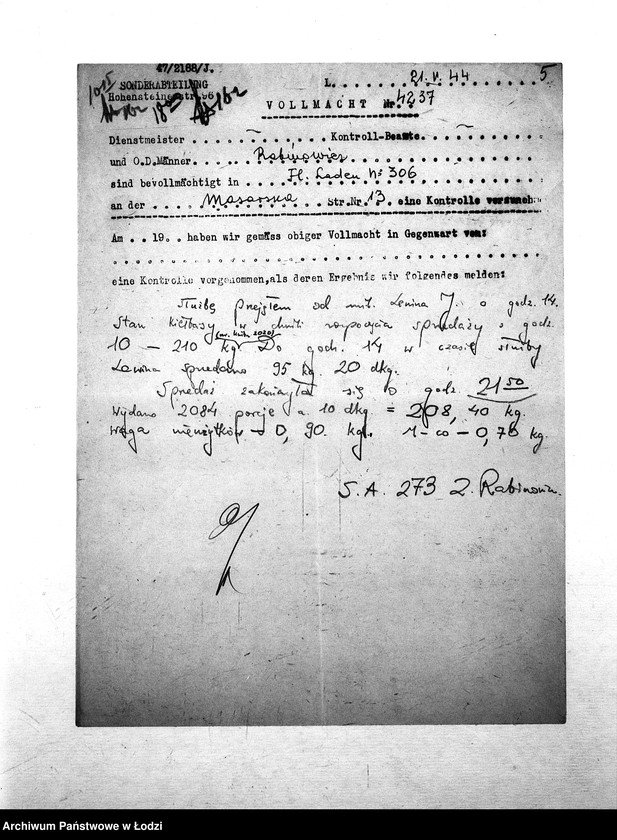 47/2168/J.
SONDERABTEILUNG L. 21.V.44 5
Hohensteinerstr. 56
VOLLMACHT Nr. 4237
Dienstmeister ~ Kontroll-Beamte ~
und O.D.Männer Rabinowicz
sind bevollmächtigt in Fl. Laden No 306
an der Masarska Str.Nr. 13. eine Kontrolle
Am . . 19 . . haben wir gemäss obiger Vollmacht in Gegenwart von:
eine Kontrolle vorgenommen, als deren Ergebnis wir folgendes melden:
Służbę przejąłem od mil. Lenina J. o godz. 14.
Stan kiełbasy w chwili rozpoczęcia sprzedaży o godz.
10 – 210 kg. Do godz. 14 w czasie służby
Lenina sprzedano 95 kg. 20 dkg.
Sprzedaż zakończyła się o godz. 21 50
Wydano 2084 porcje a. 10 dkg. = 208,40 kg.
Waga – 0,90 kg. – 0,70 kg.
S.A. 273 Z. Rabinowicz.
Archiwum Państwowe w Łodzi